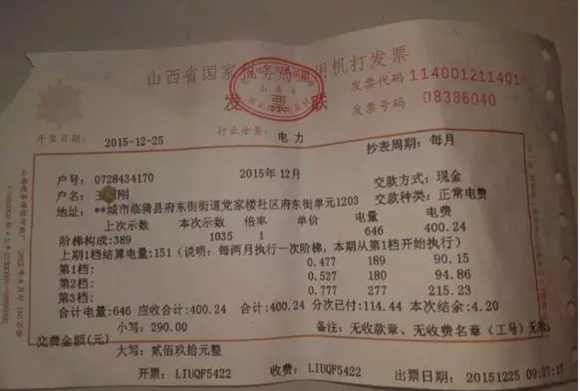 山西省国家税务局通用机打发票
发票联
发票代码 114001211401
发票号码 08386040
开票日期: 2015-12-25
行业分类: 电力
抄表周期: 每月
户号: 0728434170 2015年12月 交款方式: 现金
户名: 王 刚 交款种类: 正常电费
地址: **城市临猗县府东街街道党家楼社区府东街单元1203
上次示数 本次示数 倍率 单价 电量 电费
1035 1 646 400.24
阶梯构成:389
上期1档结算电量:151 (说明: 每两月执行一次阶梯, 本期从第1档开始执行)
第1档: 0.477 189 90.15
第2档: 0.527 180 94.86
第3档: 0.777 277 215.23
合计电量:646 应收合计:400.24 合计:400.24 分次已付:114.44 本次结余:4.20
小写: 290.00 备注: 无收款章、无收费名章(工号)无效
交费金额(元)
大写: 贰佰玖拾元整
开票: LIUQF5422 收费: LIUQF5422 出票日期: 20151225 09:37:17